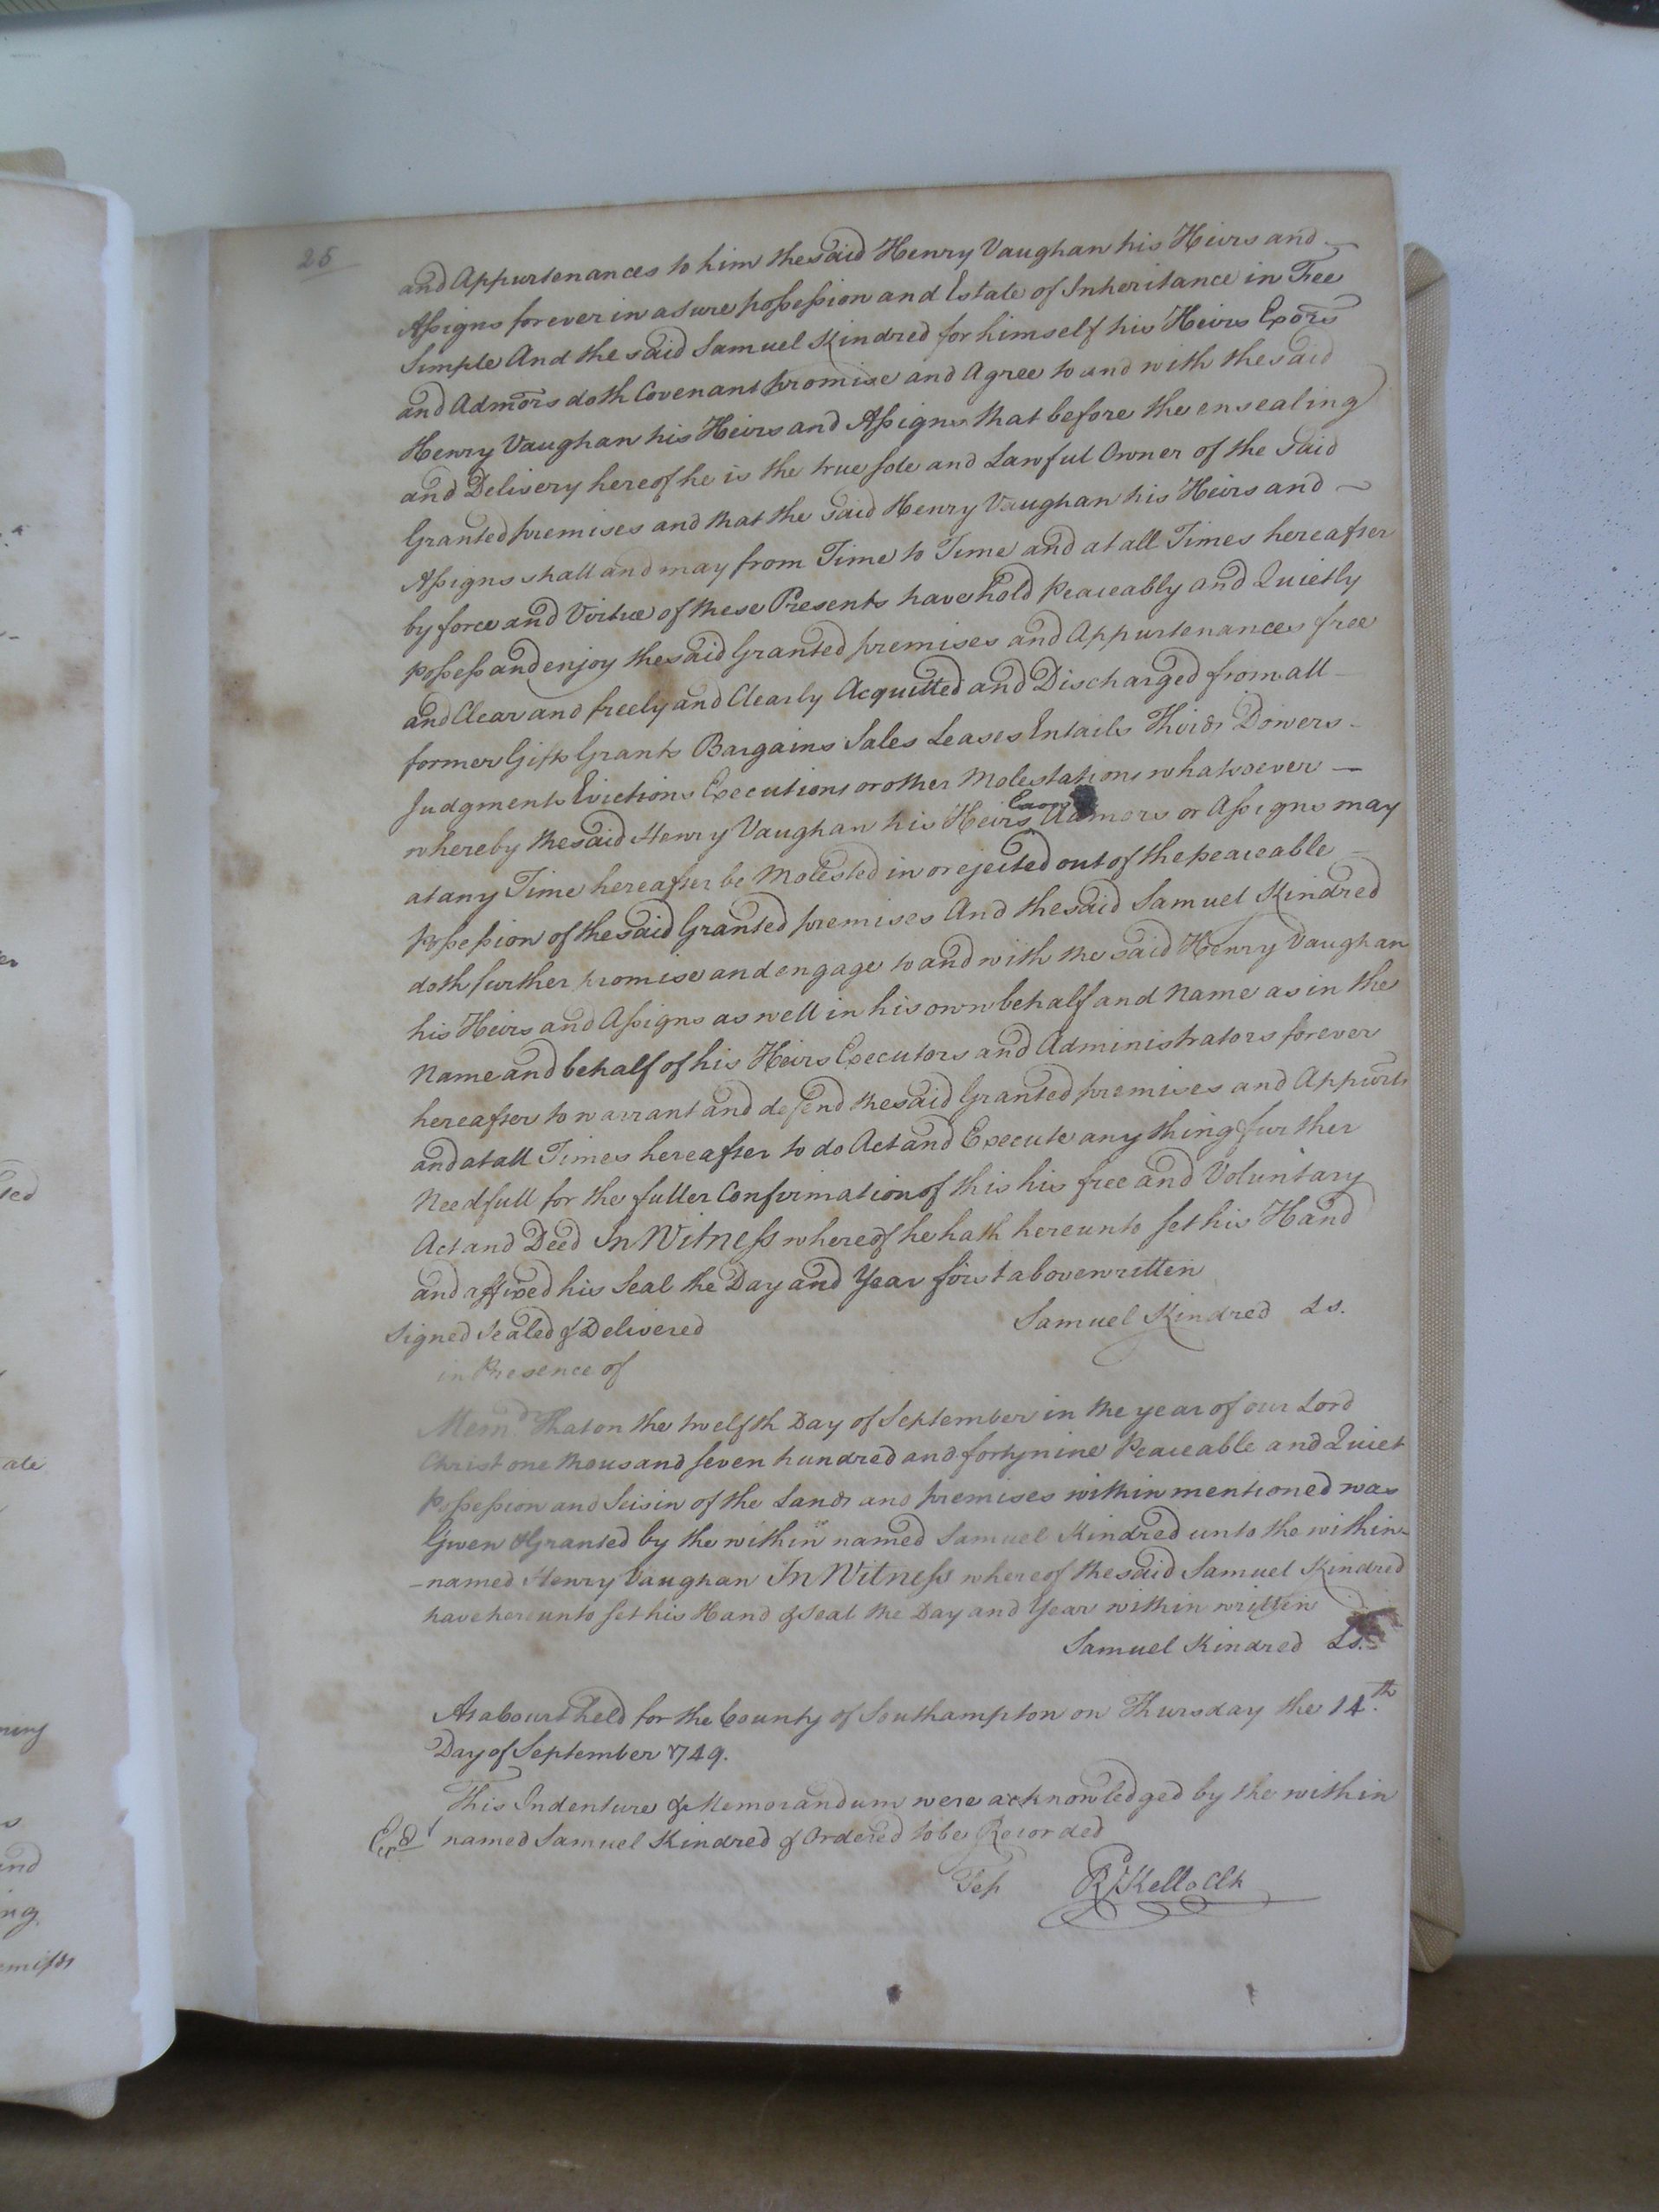 26
and Appurtenances to him the said Henry Vaughan his Heirs and
Assigns forever in a sure possession and Estate of Inheritance in Fee
Simple And the said Samuel Kindred for himself his Heirs Exors
and Admors doth Covenant promise and Agree to and with the said
Henry Vaughan his Heirs and Assigns that before the ensealing
and Delivery hereof he is the true sole and Lawful Owner of the said
Granted premises and that the said Henry Vaughan his Heirs and
Assigns shall and may from Time to Time and at all Times hereafter
by force and Virtue of these Presents have hold Peaceably and Quietly
possess and enjoy the said Granted premises and Appurtenances free
and Clear and freely and Clearly Acquitted and Discharged from all
former Gifts Grants Bargains Sales Leases Entails Thirds Dowers
Judgments Evictions Executions or other Molestations whatsoever
whereby the said Henry Vaughan his Heirs Exors Admors or Assigns may
at any Time hereafter be Molested in or ejected out of the peaceable
Possession of the said Granted premises And the said Samuel Kindred
doth further promise and engage to and with the said Henry Vaughan
his Heirs and Assigns as well in his own behalf and Name as in the
Name and behalf of his Heirs Executors and Administrators forever
hereafter to warrant and defend the said Granted premises and Appurts
and at all Times hereafter to do Act and Execute any thing further
Needfull for the fuller Confirmation of this his free and Voluntary
Act and Deed In Witness whereof he hath hereunto set his Hand
and affixed his Seal the Day and Year first above written
Signed Sealed & Delivered Samuel Kindred Ls.
in Presence of
Memd. That on the twelfth Day of September in the year of our Lord
Christ one thousand seven hundred and forty nine Peaceable and Quiet
Possession and Seisin of the Lands and premises within mentioned was
Given & Granted by the within named Samuel Kindred unto the within
-named Henry Vaughan In Witness whereof the said Samuel Kindred
have hereunto set his Hand & Seal the Day and Year within written
Samuel Kindred Ls.
At a Court held for the County of Southampton on Thursday the 14.th
Day of September 1749.
This Indenture & Memorandum were acknowledged by the within
Exd named Samuel Kindred & Ordered to be Recorded
Test R Kello Clk
ated
ale
ning
and
ing
emises